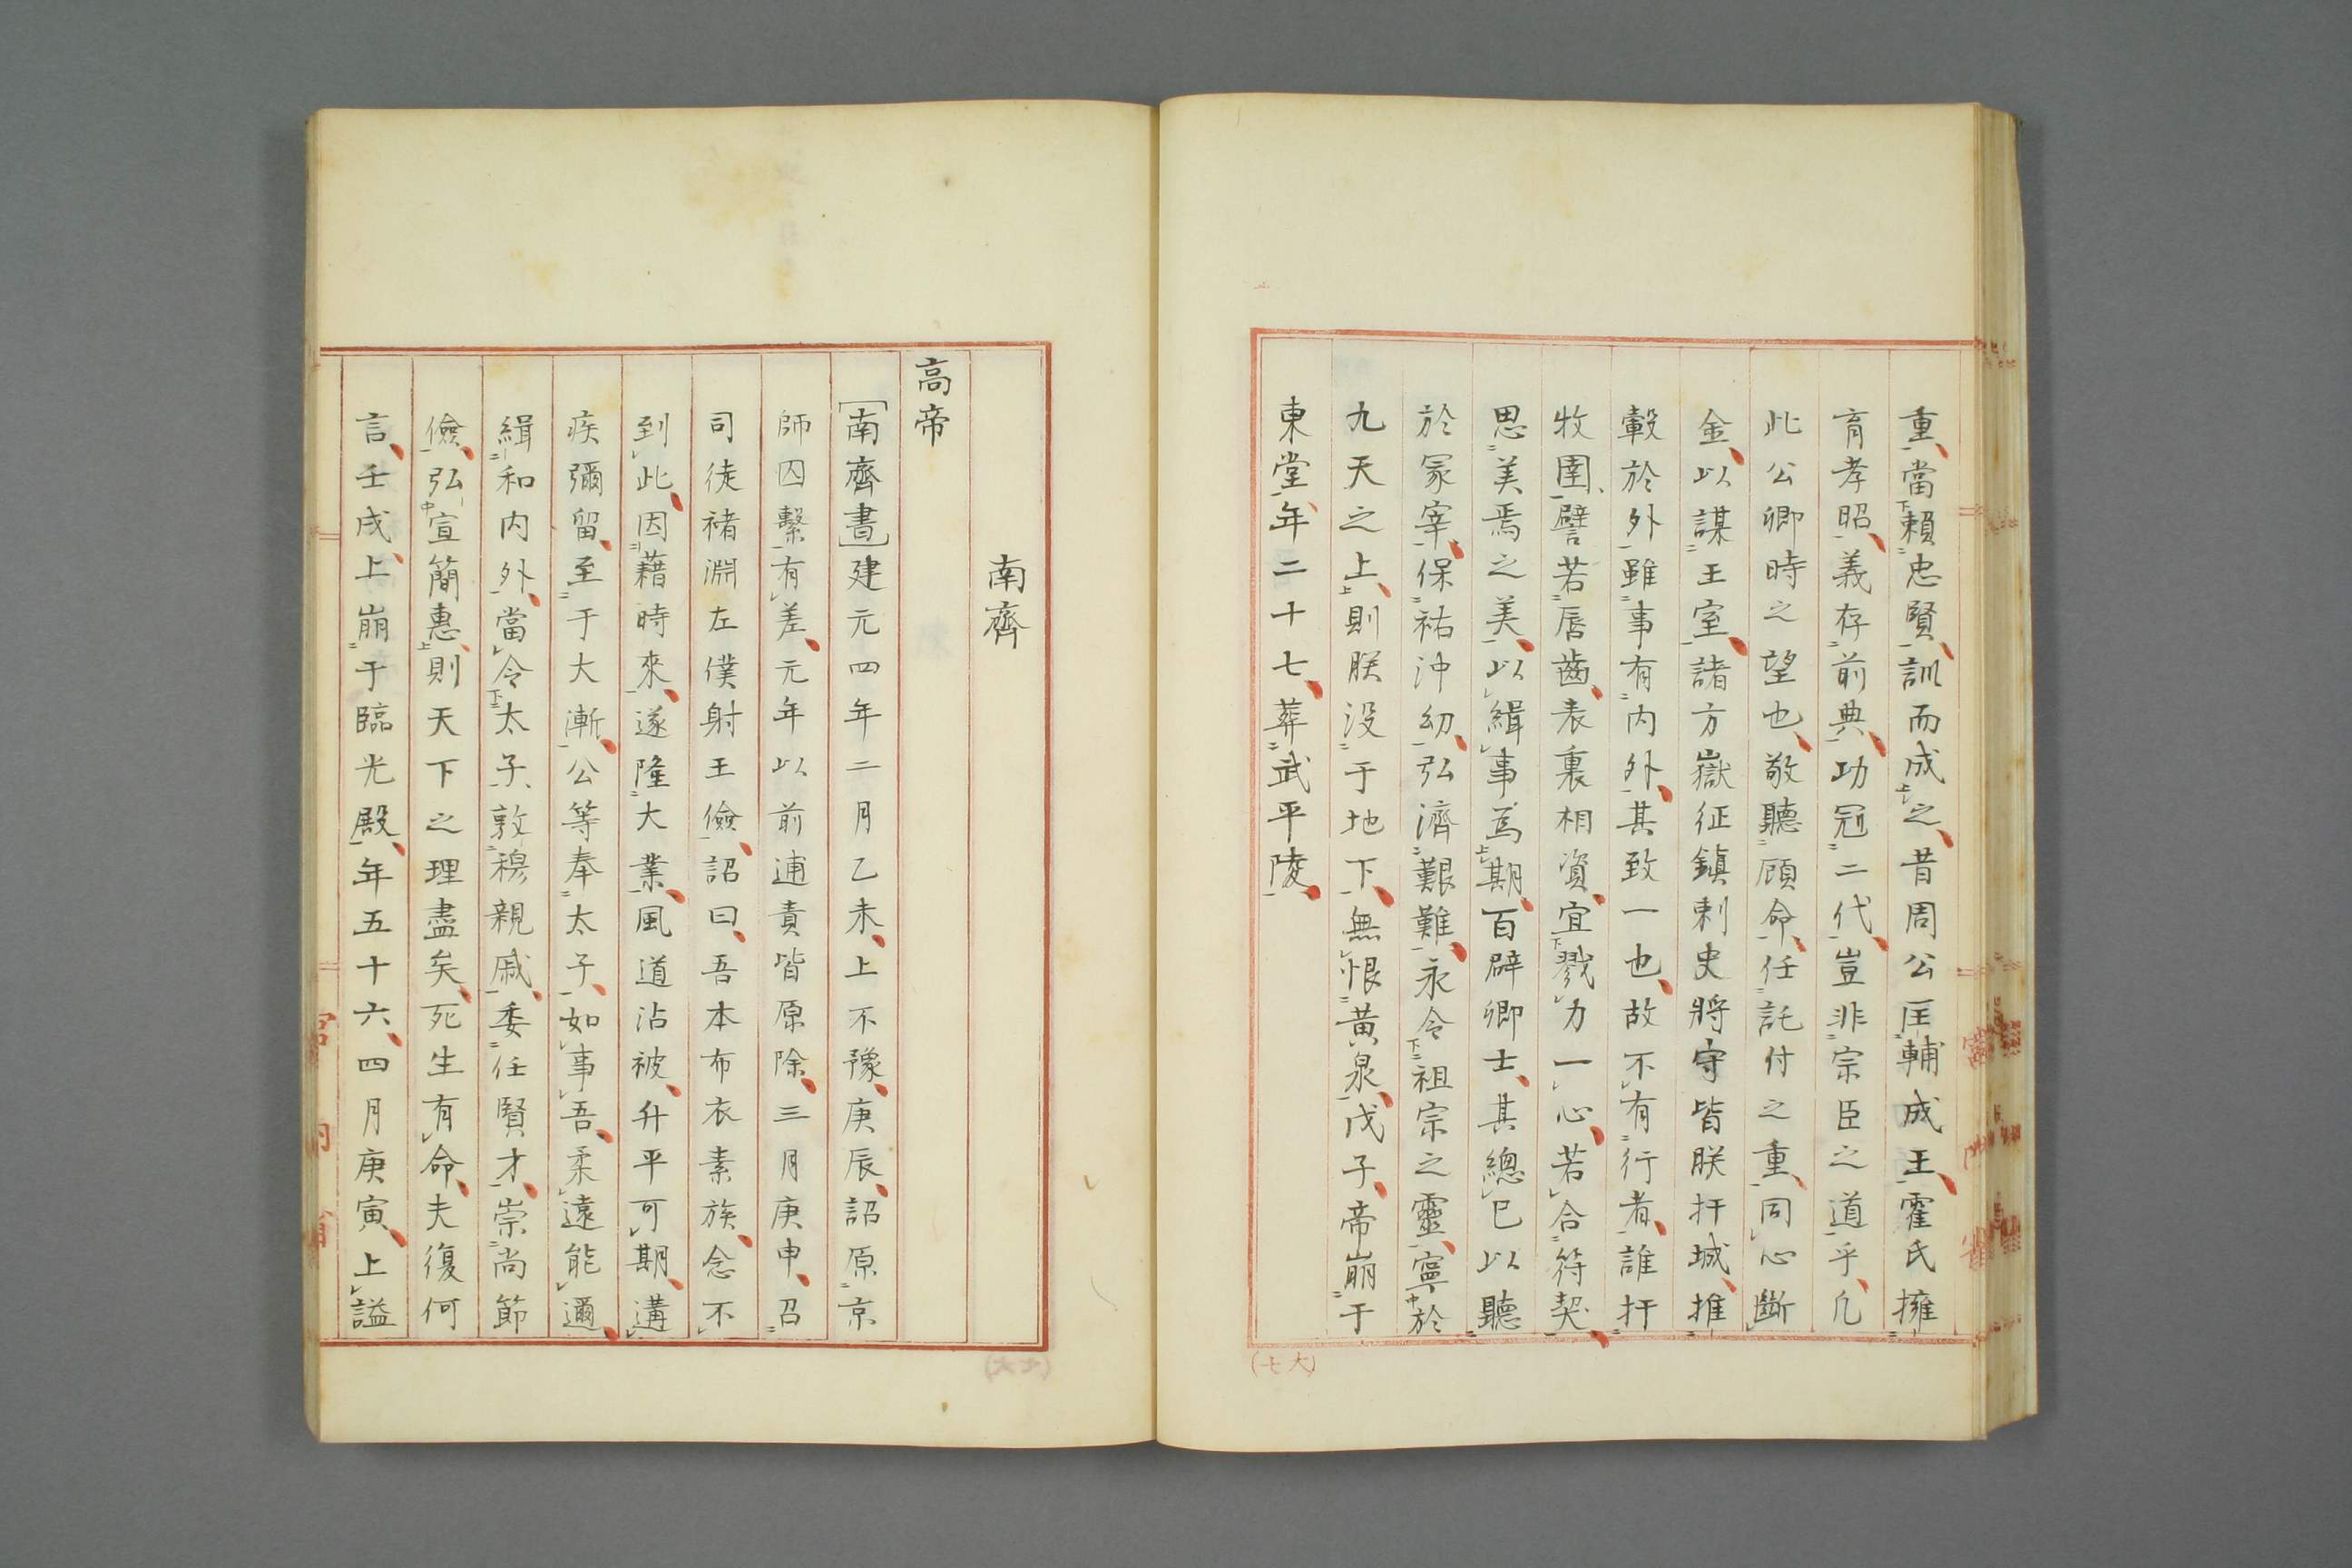 重、當賴忠賢、訓而成之、昔周公匡輔成王、霍氏擁
育孝昭、義存前典、功冠二代、豈非宗臣之道乎、凡
此公卿時之望也、敬聽顧命、任託付之重、同心斷
金、以謀王室、諸方嶽征鎮刺史將守皆朕扞城、推
轂於外、雖事有内外、其致一也、故不有行者、誰扞
牧圉、譬若唇齒、表裏相資、宜戮力一心、若合符契、
思美焉之美、以緝事為期、百辟卿士、其總已以聽
於冢宰、保祐沖幼、弘濟艱難、永令祖宗之靈、寧於
九天之上、則朕沒于地下、無恨黃泉、戊子、帝崩于
東堂、年二十七、葬武平陵、
(大七)
南齊
高帝
[南齊書]建元四年二月乙未、上不豫、庚辰、詔原京
師囚繫有差、元年以前逋責皆原除、三月庚申、召
司徒褚淵左僕射王儉、詔曰、吾本布衣素族、念不
到此、因藉時來、遂隆大業、風道沾被、升平可期、遘
疾彌留、至于大漸、公等奉太子、如事吾、柔遠能邇、
緝和内外、當令太子、敦穆親戚、委任賢才、崇尚節
儉、弘宣簡惠、則天下之理盡矣、死生有命、夫復何
言、壬戌、上崩于臨光殿、年五十六、四月庚寅、上謚
宮内省